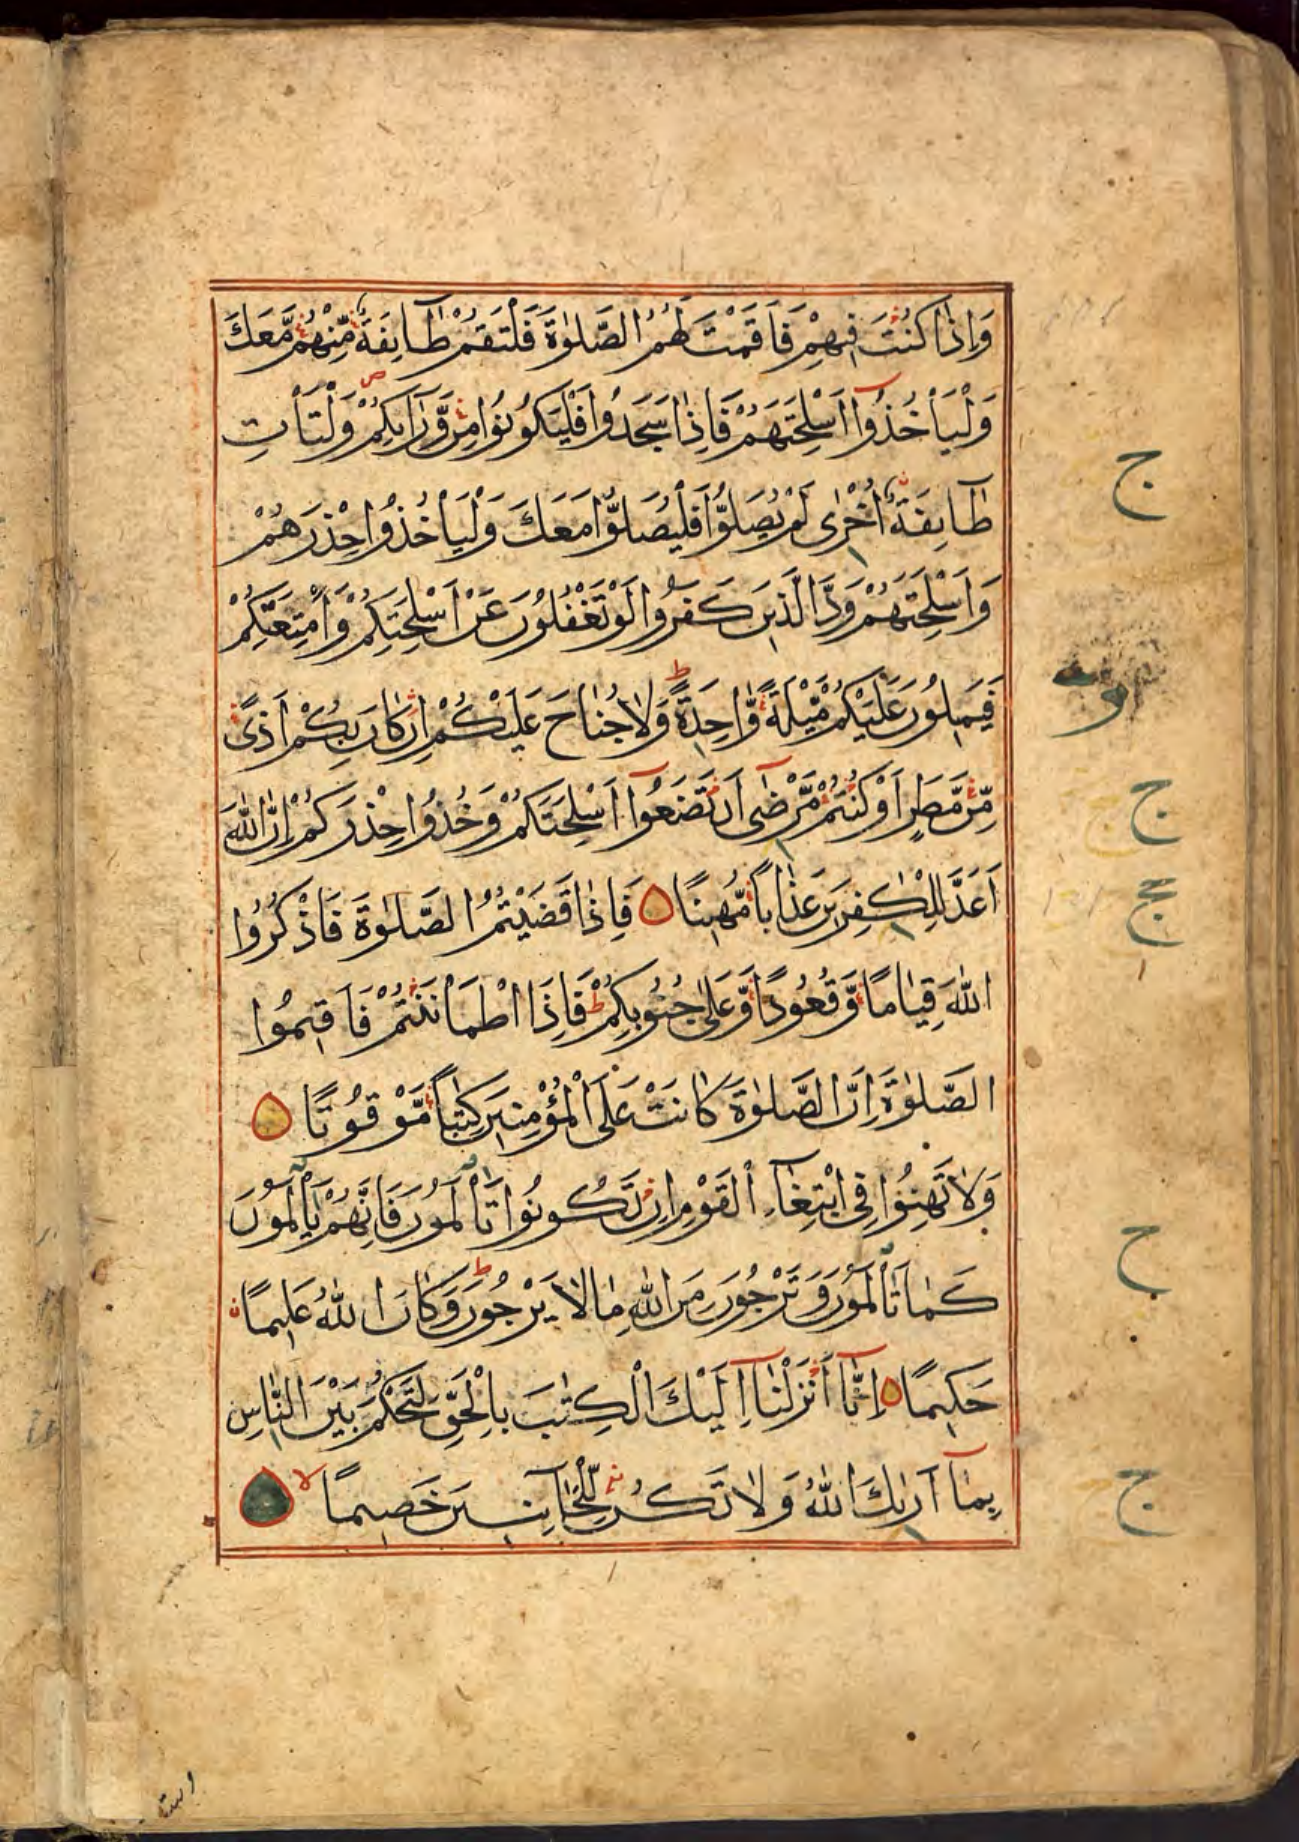 وَاِذَا كُنْتَ فِيهِمْ فَاَقَمْتَ لَهُمُ الصَّلٰوةَ فَلْتَقُمْ طَآئِفَةٌ مِّنْهُمْ مَّعَكَ
وَلْيَأْخُذُوٓا اَسْلِحَتَهُمْ فَاِذَا سَجَدُوا فَلْيَكُونُوا مِنْ وَّرَآئِكُمْ وَلْتَأْتِ
طَآئِفَةٌ اُخْرٰى لَمْ يُصَلُّوا فَلْيُصَلُّوا مَعَكَ وَلْيَأْخُذُوا حِذْرَهُمْ
وَاَسْلِحَتَهُمْ وَدَّ الَّذِينَ كَفَرُوا لَوْ تَغْفُلُونَ عَنْ اَسْلِحَتِكُمْ وَاَمْتِعَتِكُمْ
فَيَمِيلُونَ عَلَيْكُمْ مَّيْلَةً وَّاحِدَةً ط وَلَا جُنَاحَ عَلَيْكُمْ اِنْ كَانَ بِكُمْ اَذًى
مِّنْ مَّطَرٍ اَوْ كُنْتُمْ مَّرْضٰٓى اَنْ تَضَعُوٓا اَسْلِحَتَكُمْ وَخُذُوا حِذْرَكُمْ اِنَّ اللّٰهَ
اَعَدَّ لِلْكٰفِرِينَ عَذَابًا مُّهِينًا فَاِذَا قَضَيْتُمُ الصَّلٰوةَ فَاذْكُرُوا
اللّٰهَ قِيَامًا وَّقُعُودًا وَّعَلٰى جُنُوبِكُمْ ط فَاِذَا اطْمَأْنَنْتُمْ فَاَقِيمُوا
الصَّلٰوةَ اِنَّ الصَّلٰوةَ كَانَتْ عَلَى الْمُؤْمِنِينَ كِتٰبًا مَّوْقُوتًا
وَلَا تَهِنُوا فِى ابْتِغَآءِ الْقَوْمِ اِنْ تَكُونُوا تَأْلَمُونَ فَاِنَّهُمْ يَأْلَمُونَ
كَمَا تَأْلَمُونَ وَتَرْجُونَ مِنَ اللّٰهِ مَا لَا يَرْجُونَ ط وَكَانَ اللّٰهُ عَلِيمًا
حَكِيمًا اِنَّآ اَنْزَلْنَآ اِلَيْكَ الْكِتٰبَ بِالْحَقِّ لِتَحْكُمَ بَيْنَ النَّاسِ
بِمَآ اَرٰىكَ اللّٰهُ وَلَا تَكُنْ لِّلْخَآئِنِينَ خَصِيمًا لا
ج
ج
ج
ج